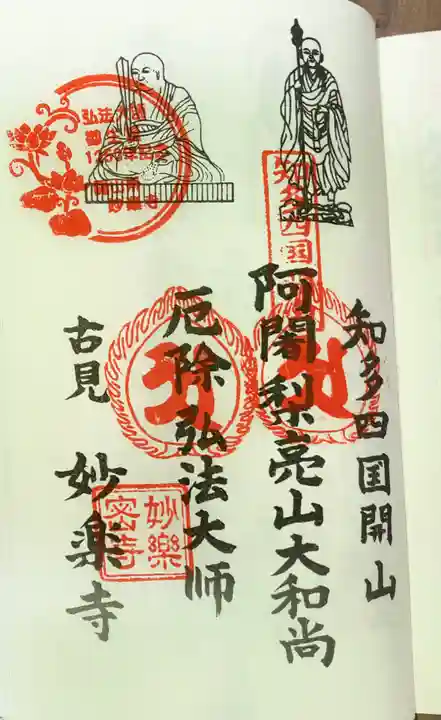 知多四国開山
阿闍梨亮山大和尚
厄除弘法大師
古見 妙楽寺
知多四国
弘法大師
妙樂
密寺